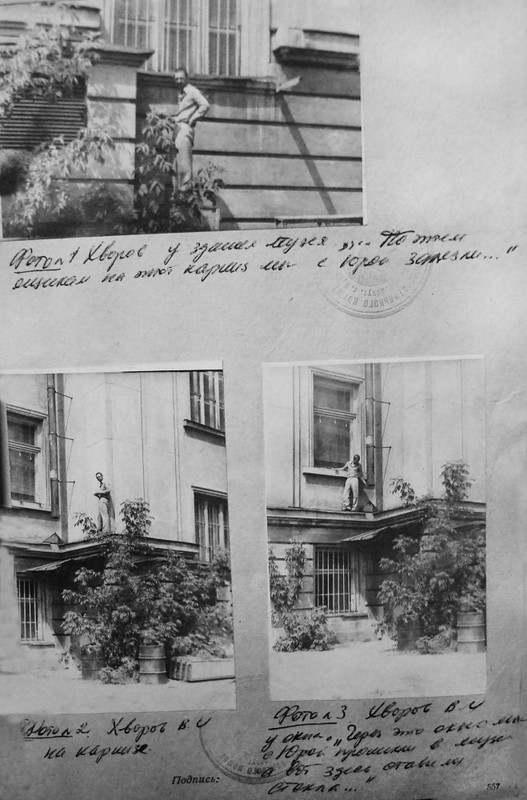 Фото №1 Хворов у здания музея „... По этим
ящикам на этот карниз мы с Юрой залезли..."
Фото №2. Хворов В.И
на карнизе
Фото №3 Хворов В.И
у окна. „Через это окно мы
с Юрой прошли в музей
а вот здесь ставили
стекла..."
Подпись:
557